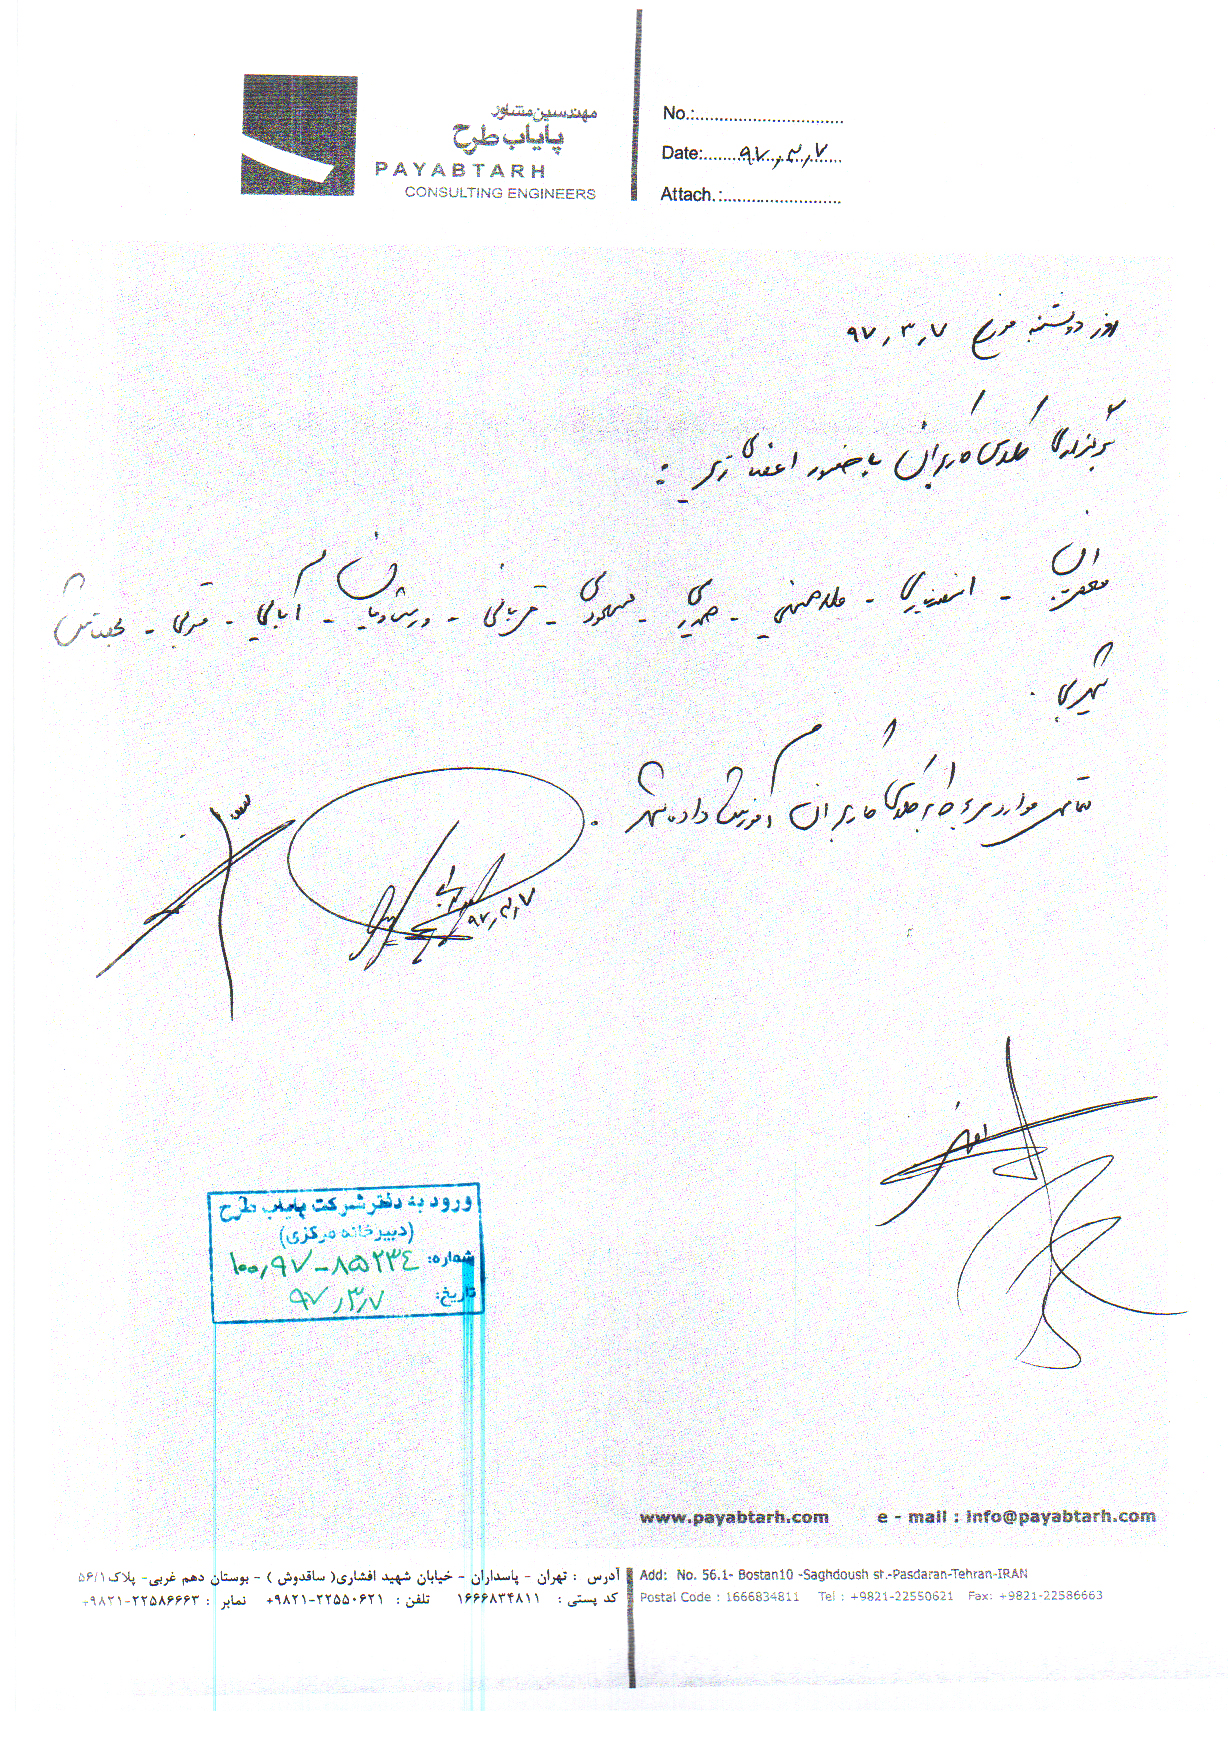 مهندسین مشاور
پایاب طرح
PAYABTARH
CONSULTING ENGINEERS
No.:
Date: ۹۷,۳,۷
Attach.:
روز دوشنبه مورخ ۹۷,۳,۷
برگزاری کلاس کاربران با حضور اعضای زیر :
اسفندیاری - ملاحسینی - حیدری - مسعودی - قربانی - - آبایی -
تمامی موارد مربوط به کلاس کاربران آموزش داده شد .
۹۷,۳,۷
ورود به دفتر شرکت پایاب طرح
(دبیرخانه مرکزی)
شماره: ۱۰۰,۹۷-۸۵۲۳۴
تاریخ: ۹۷,۳,۷
www.payabtarh.com e - mail : info@payabtarh.com
آدرس : تهران - پاسداران - خیابان شهید افشاری( ساقدوش ) - بوستان دهم غربی- پلاک ۵۶/۱
کد پستی : ۱۶۶۶۸۳۴۸۱۱ تلفن : ۲۲۵۵۰۶۲۱-۹۸۲۱+ نمابر : ۲۲۵۸۶۶۶۳-۹۸۲۱+
Add: No. 56.1- Bostan10 -Saghdoush st.-Pasdaran-Tehran-IRAN
Postal Code : 1666834811 Tel : +9821-22550621 Fax: +9821-22586663